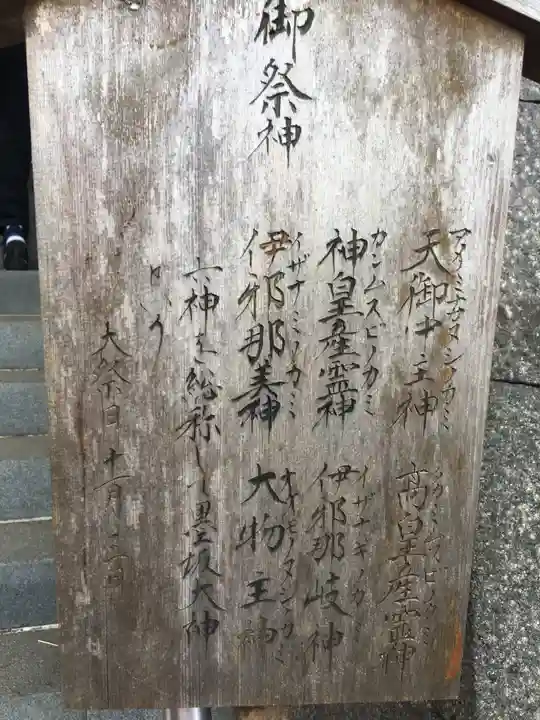 御祭神
アメノミナカヌシノカミ
天御中主神
タカミムスビノカミ
高皇産霊神
カンムスビノカミ
神皇産霊神
イザナギノカミ
伊邪那岐神
イザナミノカミ
伊邪那美神
オオモノヌシノカミ
大物主神
六神を総称して墨坂大神
と
大祭日 十一月三日